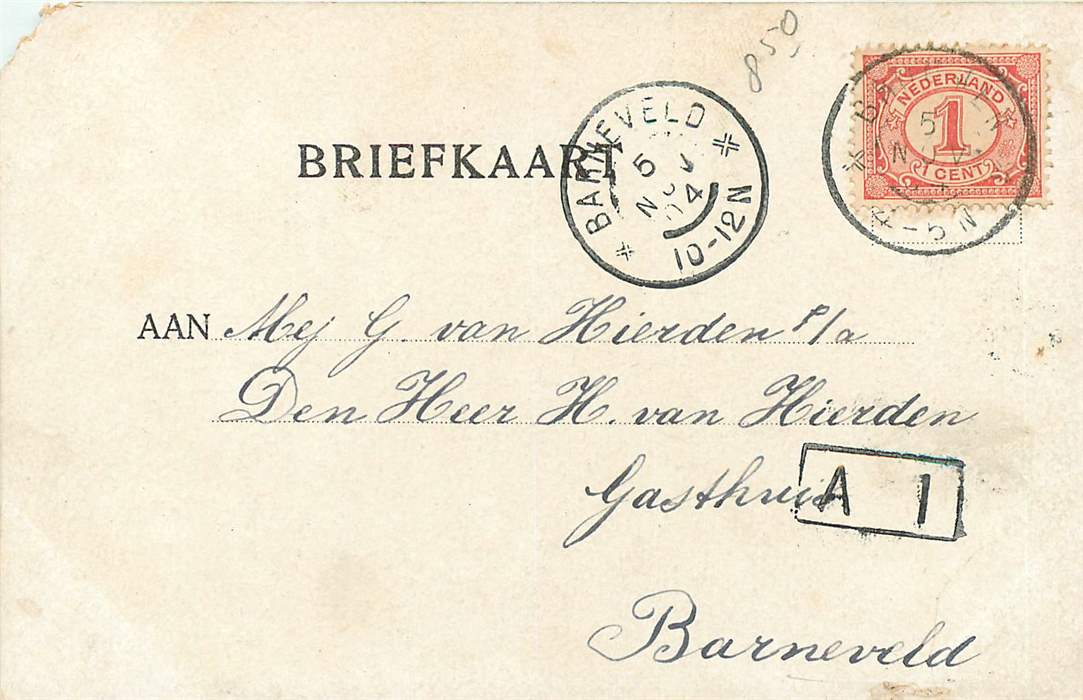 850
NEDERLAND
1
1 CENT
5
4-5N
BRIEFKAART
BARNEVELD
5
NOV
04
10-12N
AAN Mej G. van Hierden p/a
Den Heer H. van Hierden
Gasthuis
A 1
Barneveld